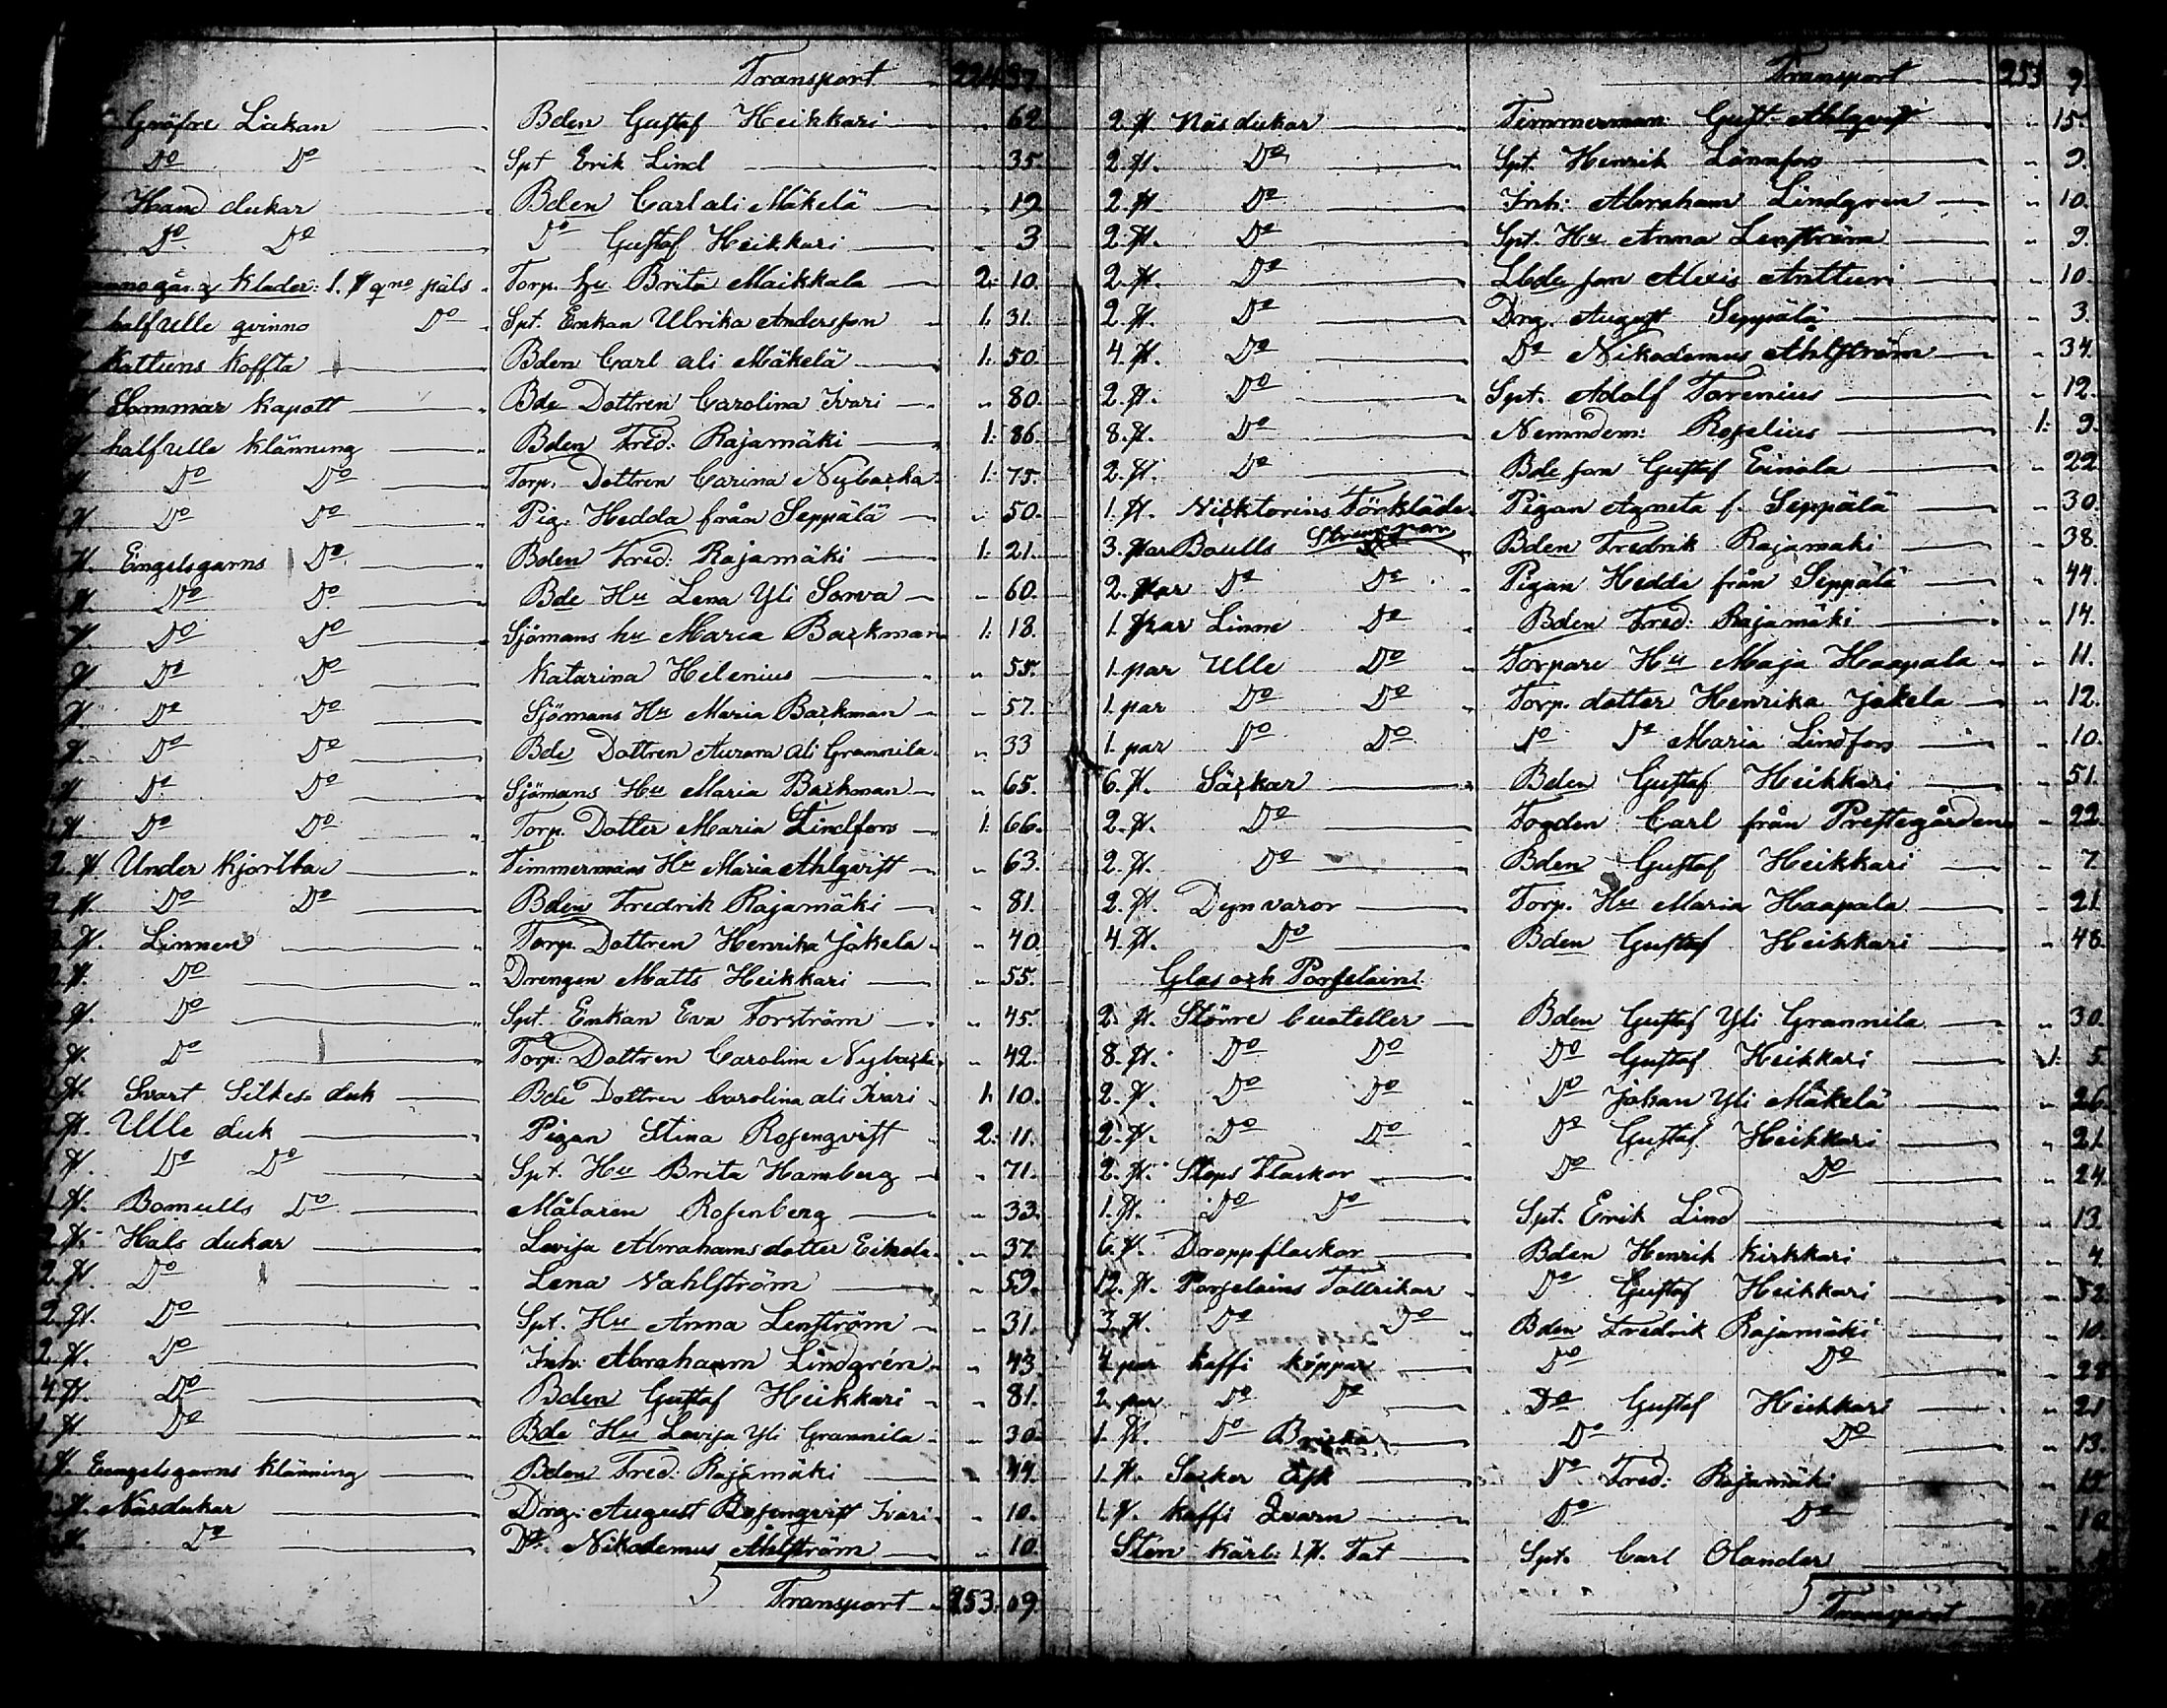 Transport 224 37
Gröfre Lakan Bden Gustaf Heikkari " 62
Do Do Spt Erik Lind " 35
Hand dukar Bden Carl ali Mäkelä " 12
Do Do Do Gustaf Heikkari " 3
klader: 1. st qno päls Torp. hu Brita Maikkala 2: 10.
half ulle qvinno Do Spt. Enkan Ulrika Andersson 1. 31.
Kattuns Koffta Bden Carl ali Mäkelä 1: 50.
Sommar Kapott Bde Dottren Carolina Ivari " 80.
st half ulle klänning Bden Fred: Rajamäki 1: 86.
st Do Do Torp. Dottren Carina Nybacka 1: 75.
st Do Do Pig. Hedda från Seppälä " 50.
st. Engelsgarns Do Bden Fred: Rajamäki 1: 21.
st. Do Do Bde Hu Lena Yli Sorva " 60.
st. Do Do Sjömans hu Maria Backman 1: 18.
st Do Do Katarina Helenius " 55.
st Do Do Sjömans Hu Maria Backman " 57.
st. Do Do Bde Dottren Aurora ali Grannila " 33
st Do Do Sjömans Hu Maria Backman " 65.
st Do Do Torp. Dotter Maria Lindfors 1: 66.
2. st. Under kjortlar Timmermans Hu Maria Ahlqvist " 63.
2. st. Do Do Bden Fredrik Rajamäki " 81.
st. Linnen Torp. Dottren Henrika Jakela " 40
2. st. Do Drengen Matts Heikkari " 55.
st. Do Spt. Enkan Eva Torström " 45.
st. Do Torp: Dottren Carolina Nybacka " 42.
st. Svart Silkes duk Bde Dottren Carolina ali Ivari 1. 10.
st. Ulle duk Pigan Stina Rosenqvist 2: 11.
st. Do Do Spt. Hu Brita Hamberg " 71.
1 st. Bomulls Do Målaren Rosenberg " 33.
2 st. Hals dukar Lovisa Abrahamsdotter Eikola " 37
2. st. Do Lena Vahlström " 59.
2. st. Do Spt. Hu Anna Lenström " 31.
2. st. Do Inh: Abraham Lindgrén " 43
4. st. Do Bden Gustaf Heikkari " 81.
1. st Do Bde Hu Lovisa Yli Grannila " 30.
1 st. Eengelsgarns klänning Bden Fred: Rajamäki " 44.
2. st. Näsdukar Drg: August Rosenqvist Ivari " 10.
st. Do Do. Nikodemus Åhlström " 10.
Transport 253: 09.
Transport 253 9
2. st. Näsdukar Timmerman: Gust. Ahlqvist " 15.
2. st. Do Spt. Henrik Lönnfors " 9.
2. st. Do Inh: Abraham Lindgren " 10.
2. st. Do Spt. Hu Anna Lenström " 9.
2. st. Do Lbde son Alexis Antturi " 10.
2. st. Do Drg. August Seppälä " 3.
4. st. Do Do Nikodemus Ahlström " 34.
2. st. Do Spt. Adolf Torenius " 12.
8. st. Do Nemndem: Roselius 1: 9.
2. st. Do Bde son Gustaf Einola " 22
1. st. Förkläde Pigan Agneta f. Seppälä " 30.
3. par Boulls Strumpor Bden Fredrik Rajamäki " 38.
2. par Do Do Pigan Hedda från Seppälä " 44.
1. par Linne Do Bden Fred: Rajamäki " 14.
1. par Ulle Do Torpare Hu Maja Haapala " 11.
1. par Do Do Torp. dotter Henrika Jakela " 12.
1. par Do Do Do Do Maria Lindfors " 10.
6. st. Säckar Bden Gustaf Heikkari " 51.
2. st. Do Fogden Carl från Prestegården " 22.
2. st. Do Bden Gustaf Heikkari " 7
2. st. Dynvaror Torp. Hu Maria Haapala " 21
4. st. Do Bden Gustaf Heikkari " 48.
Glas och Porselain:
2. st. Större buteller Bden Gustaf Yli Grannila " 30.
8. st. Do Do Do Gustaf Heikkari 1: 5
2. st. Do Do Do Johan Yli Mäkelä " 26.
2. st. Do Do Do Gustaf Heikkari " 21
2. st. Stops flaskor Do Do " 24.
1. st. Do Do Spt. Erik Lind " 13
6. st. Droppflaskor Bden Henrik Kirkkari " 4.
12. st. Porselains Tallrikar Do Gustaf Heikkari " 52
3. st. Do Do Bden Fredrik Rajamäki " 10.
4 par kaffi koppar Do Do " 28
2. par Do Do Do Gustaf Heikkari " 21
1. st. Do Bricka Do Do " 13.
1. st. Socker Ask Do Fred: Rajamäki " 15
1. st. kaffi Qvarn Do Do " 10
Sten kärl: 1. st. Fat Spt. Carl Olander
Transport